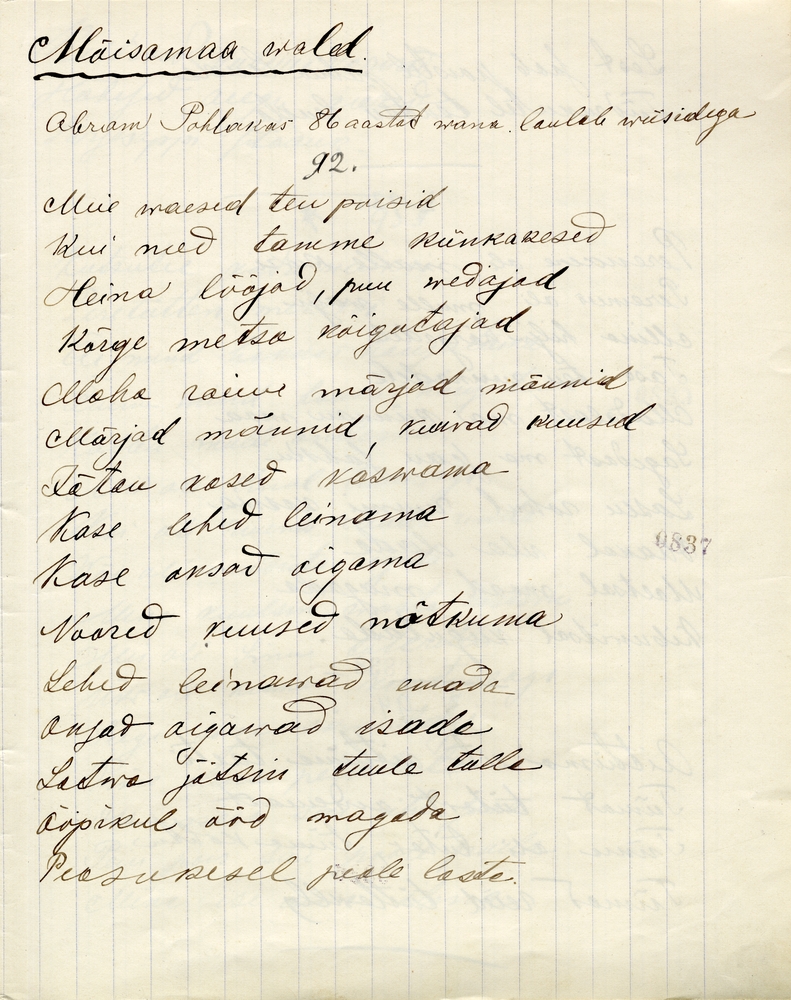 Mõisamaa wald.
Abram Pohlakas 86 aastat wana. laulab wiisidega
92.
Meie waesed teu poisid
Kui need tamme künkakesed
Heina lööjad, puu wedajad
Kõrge metsa kõigutajad
Maha raiue märjad männid
Märjad männid, kuivad kuused
Jätan kased kaswama
Kase lehed leinama
Kase oksad oigama
0837
Noored kuused nõtkuma
Lehed leinawad emada
Oksad oigawad isada
Latwa jätsin tuule talla
Ööpikul ööd magada
Peasukesel peale lasta.